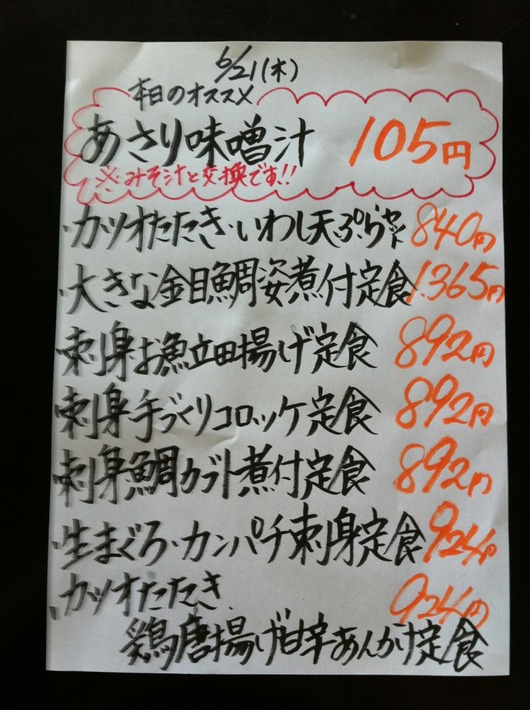 6/21(木)
本日のオススメ
あさり味噌汁 105円
※みそ汁と交換です!!
・カツオたたき・いわし天ぷら 840円
・大きな金目鯛姿煮付定食 1.365円
・刺身お魚立田揚げ定食 892円
・刺身手づくりコロッケ定食 892円
・刺身鯛カブト煮付定食 892円
・生まぐろ・カンパチ刺身定食 924円
・カツオたたき 924円
鶏唐揚げ甘辛あんかけ定食